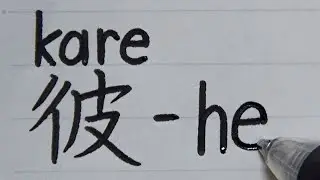 kare
彼-he